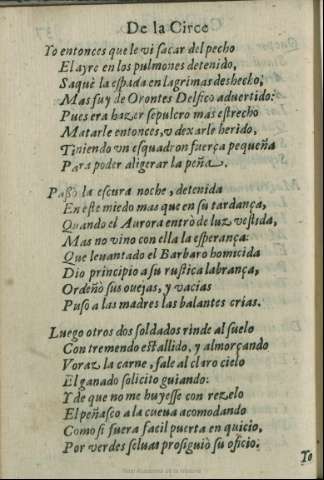 De la Circe
Yo entonces que le vi sacar del pecho
El ayre en los pulmones detenido,
Saquè la espada en lagrimas deshecho,
Mas fuy de Orontes Delfico aduertido:
Pues era hazer sepulcro mas estrecho
Matarle entonces, o dexarle herido,
Teniendo vn esquadron fuerça pequeña
Para poder aligerar la peña.
Passò la escura noche, detenida
En este miedo mas que en su tardança,
Quando el Aurora entrò de luz vestida,
Mas no vino con ella la esperança:
Que leuantado el Barbaro homicida
Dio principio a su rustica labrança,
Ordeñò sus ouejas, y vacias
Puso a las madres las balantes crias.
Luego otros dos soldados rinde al suelo
Con tremendo estallido, y almorçando
Voraz la carne, sale al claro cielo
El ganado solicito guiando:
Y de que no me huyesse con rezelo
El peñasco a la cueua acomodando
Como si fuera facil puerta en quicio,
Por verdes seluas prosiguiò su oficio.
Yo
Real Academia de la Historia